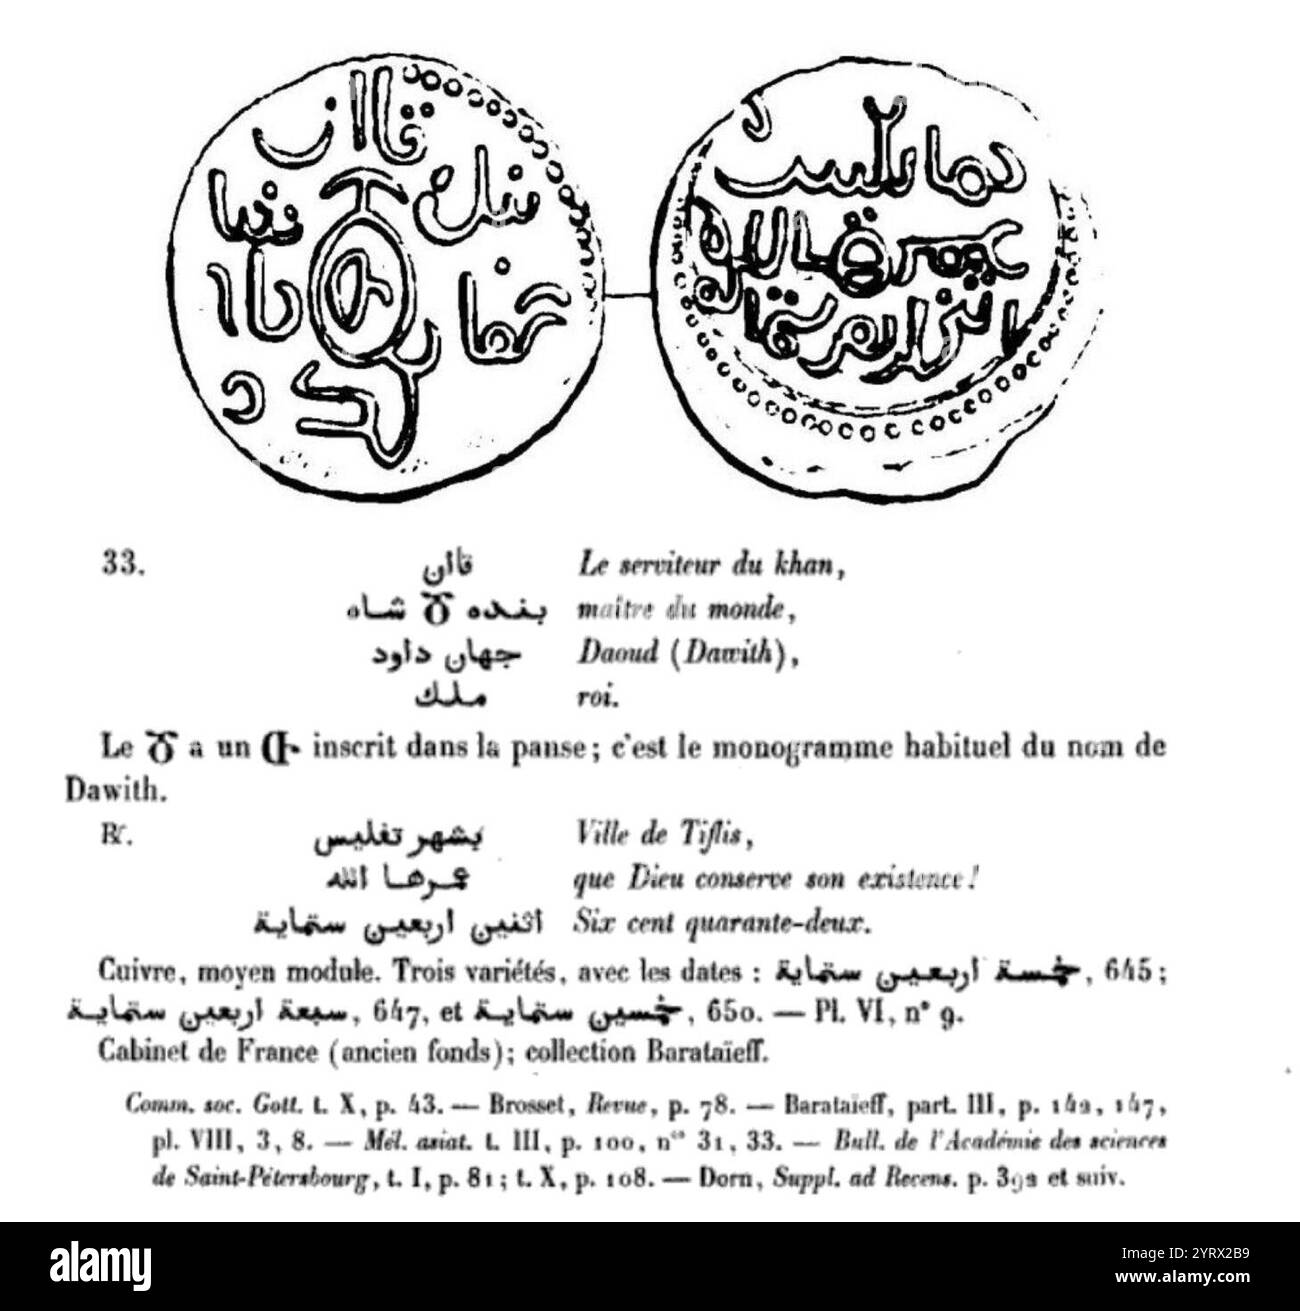 33. قاان Le serviteur du khan,
بنده Ⴃ شاه maître du monde,
جهان داود Daoud (Dawith),
ملك roi.
Le Ⴃ a un Ⴇ inscrit dans la panse; c'est le monogramme habituel du nom de
Dawith.
R. بشهر تفليس Ville de Tiflis,
عمرها الله que Dieu conserve son existence!
اثنين اربعين ستماية Six cent quarante-deux.
Cuivre, moyen module. Trois variétés, avec les dates : خمسة اربعين ستماية, 645;
سبعة اربعين ستماية, 647, et خمسين ستماية, 650. — Pl. VI, n° 9.
Cabinet de France (ancien fonds); collection Barataïeff.
Comm. soc. Gott. t. X, p. 43. — Brosset, Revue, p. 78. — Barataïeff, part. III, p. 142, 147,
pl. VIII, 3, 8. — Mél. asiat. t. III, p. 100, nos 31, 33. — Bull. de l'Académie des sciences
de Saint-Pétersbourg, t. I, p. 81; t. X, p. 108. — Dorn, Suppl. ad Recens. p. 392 et suiv.
alamy
Image ID: 2YRX2B9
www.alamy.com